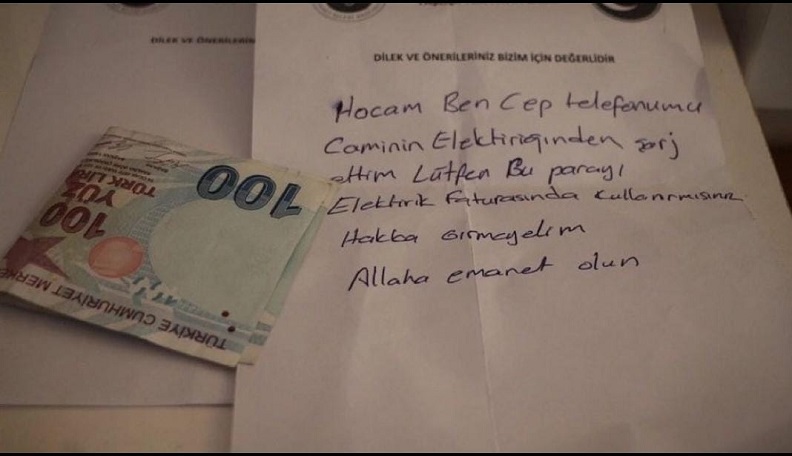 DİLEK VE ÖNERİLERİN
DİLEK VE ÖNERİLERİNİZ BİZİM İÇİN DEĞERLİDİR
Hocam Ben Cep telefonumu
Caminin Elektiriğinden şarj
ettim Lütfen Bu parayı
Elektirik Faturasında kullanırmısınız
Hakka Girmeyelim
Allaha emanet olun
100
100
YÜZ
TÜRK LİRASI
TÜRKİYE CUMHURİYET MERKE